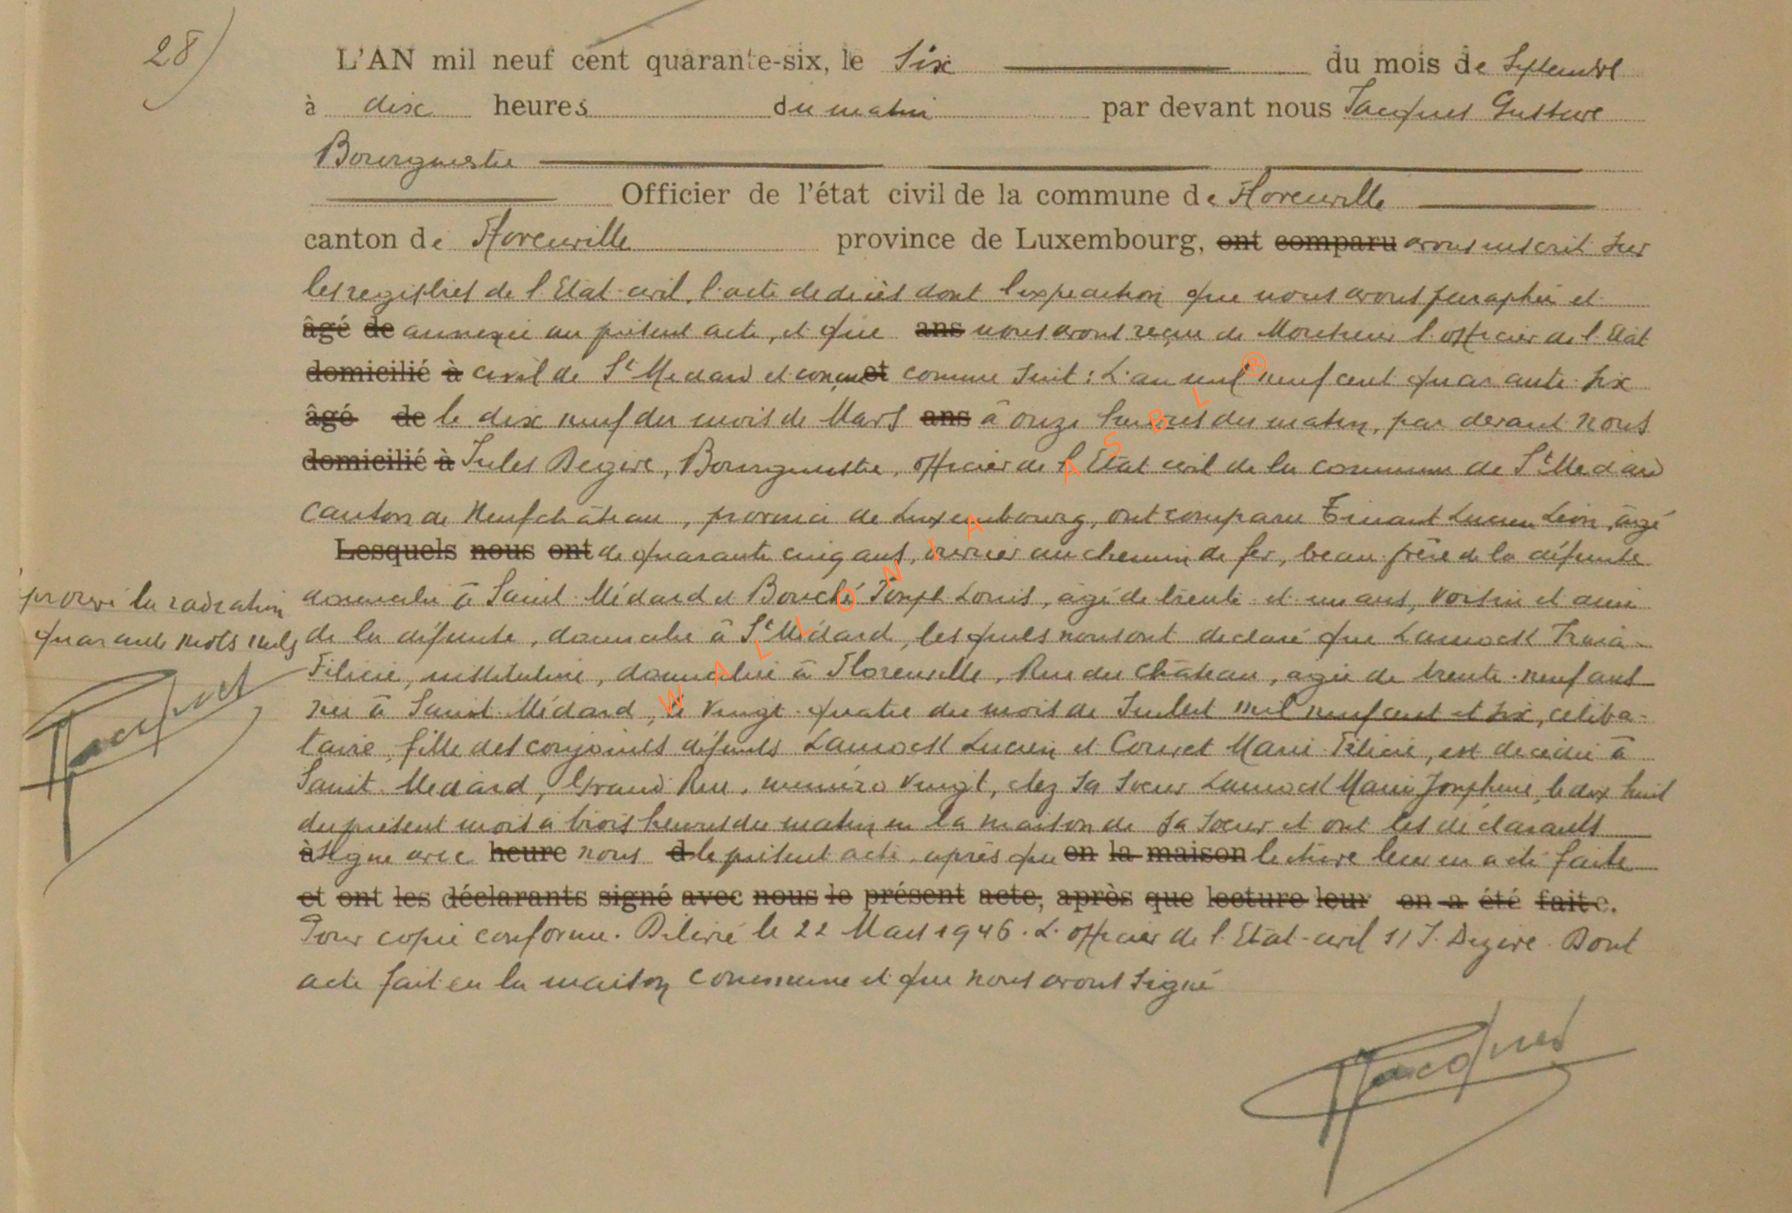 28)
L'AN mil neuf cent quarante-six, le six du mois de Septembre
à dix heures du matin par devant nous Jacques Gustave
Bourgmestre
Officier de l'état civil de la commune de Florenville
canton de Florenville province de Luxembourg, ont comparu avons inscrit sur
les registres de l'Etat-civil, l'acte de décès dont l'expédition que nous avons paraphée et
âgé de annexée au présent acte, et que ans nous avons reçue de Monsieur l'officier de l'Etat
domicilié à civil de St Medard et conçu et comme suit : L'an mil neuf cent quarante-six
âgé de le dix neuf du mois de Mars ans à onze heures du matin, par devant nous
domicilié à Jules Dezire, Bourgmestre, officier de l'Etat civil de la commune de St Medard
canton de Neufchâteau, province de Luxembourg, ont comparu Tinant Lucien Léon, âgé
Lesquels nous ont de quarante cinq ans, ouvrier au chemin de fer, beau-frère de la défunte
domicilié à Saint-Médard et Bouché Joseph Louis, âgé de trente et un ans, voisin et ami
de la défunte, domicilié à St Médard, lesquels nous ont déclaré que Lamock
Félicie, institutrice, domiciliée à Florenville, Rue du Château, agée de trente-neuf ans
née à Saint-Médard, le vingt-quatre du mois de Juillet mil neuf cent et six, céliba-
taire, fille des conjoints défunts Lamock Lucien et Couset Marie Félicie, est décédée à
Saint Medard, Grand Rue, numéro vingt, chez sa soeur Lamock Marie Joséphine, le dix huit
du présent mois à trois heures du matin en la maison de sa soeur et ont les déclarants
à signé avec heure nous d le présent acte, après que en la maison lecture leur en a été faite
et ont les déclarants signé avec nous le présent acte, après que lecture leur en a été faite.
Pour copie conforme. Délivré le 22 Mars 1946. L'officier de l'Etat-civil s/ J. Dezire. Dont
acte fait en la maison communne et que nous avons signé
Jacques
la radiation
quarante mots nuls
Jacques
WALLONIA ASBL ®